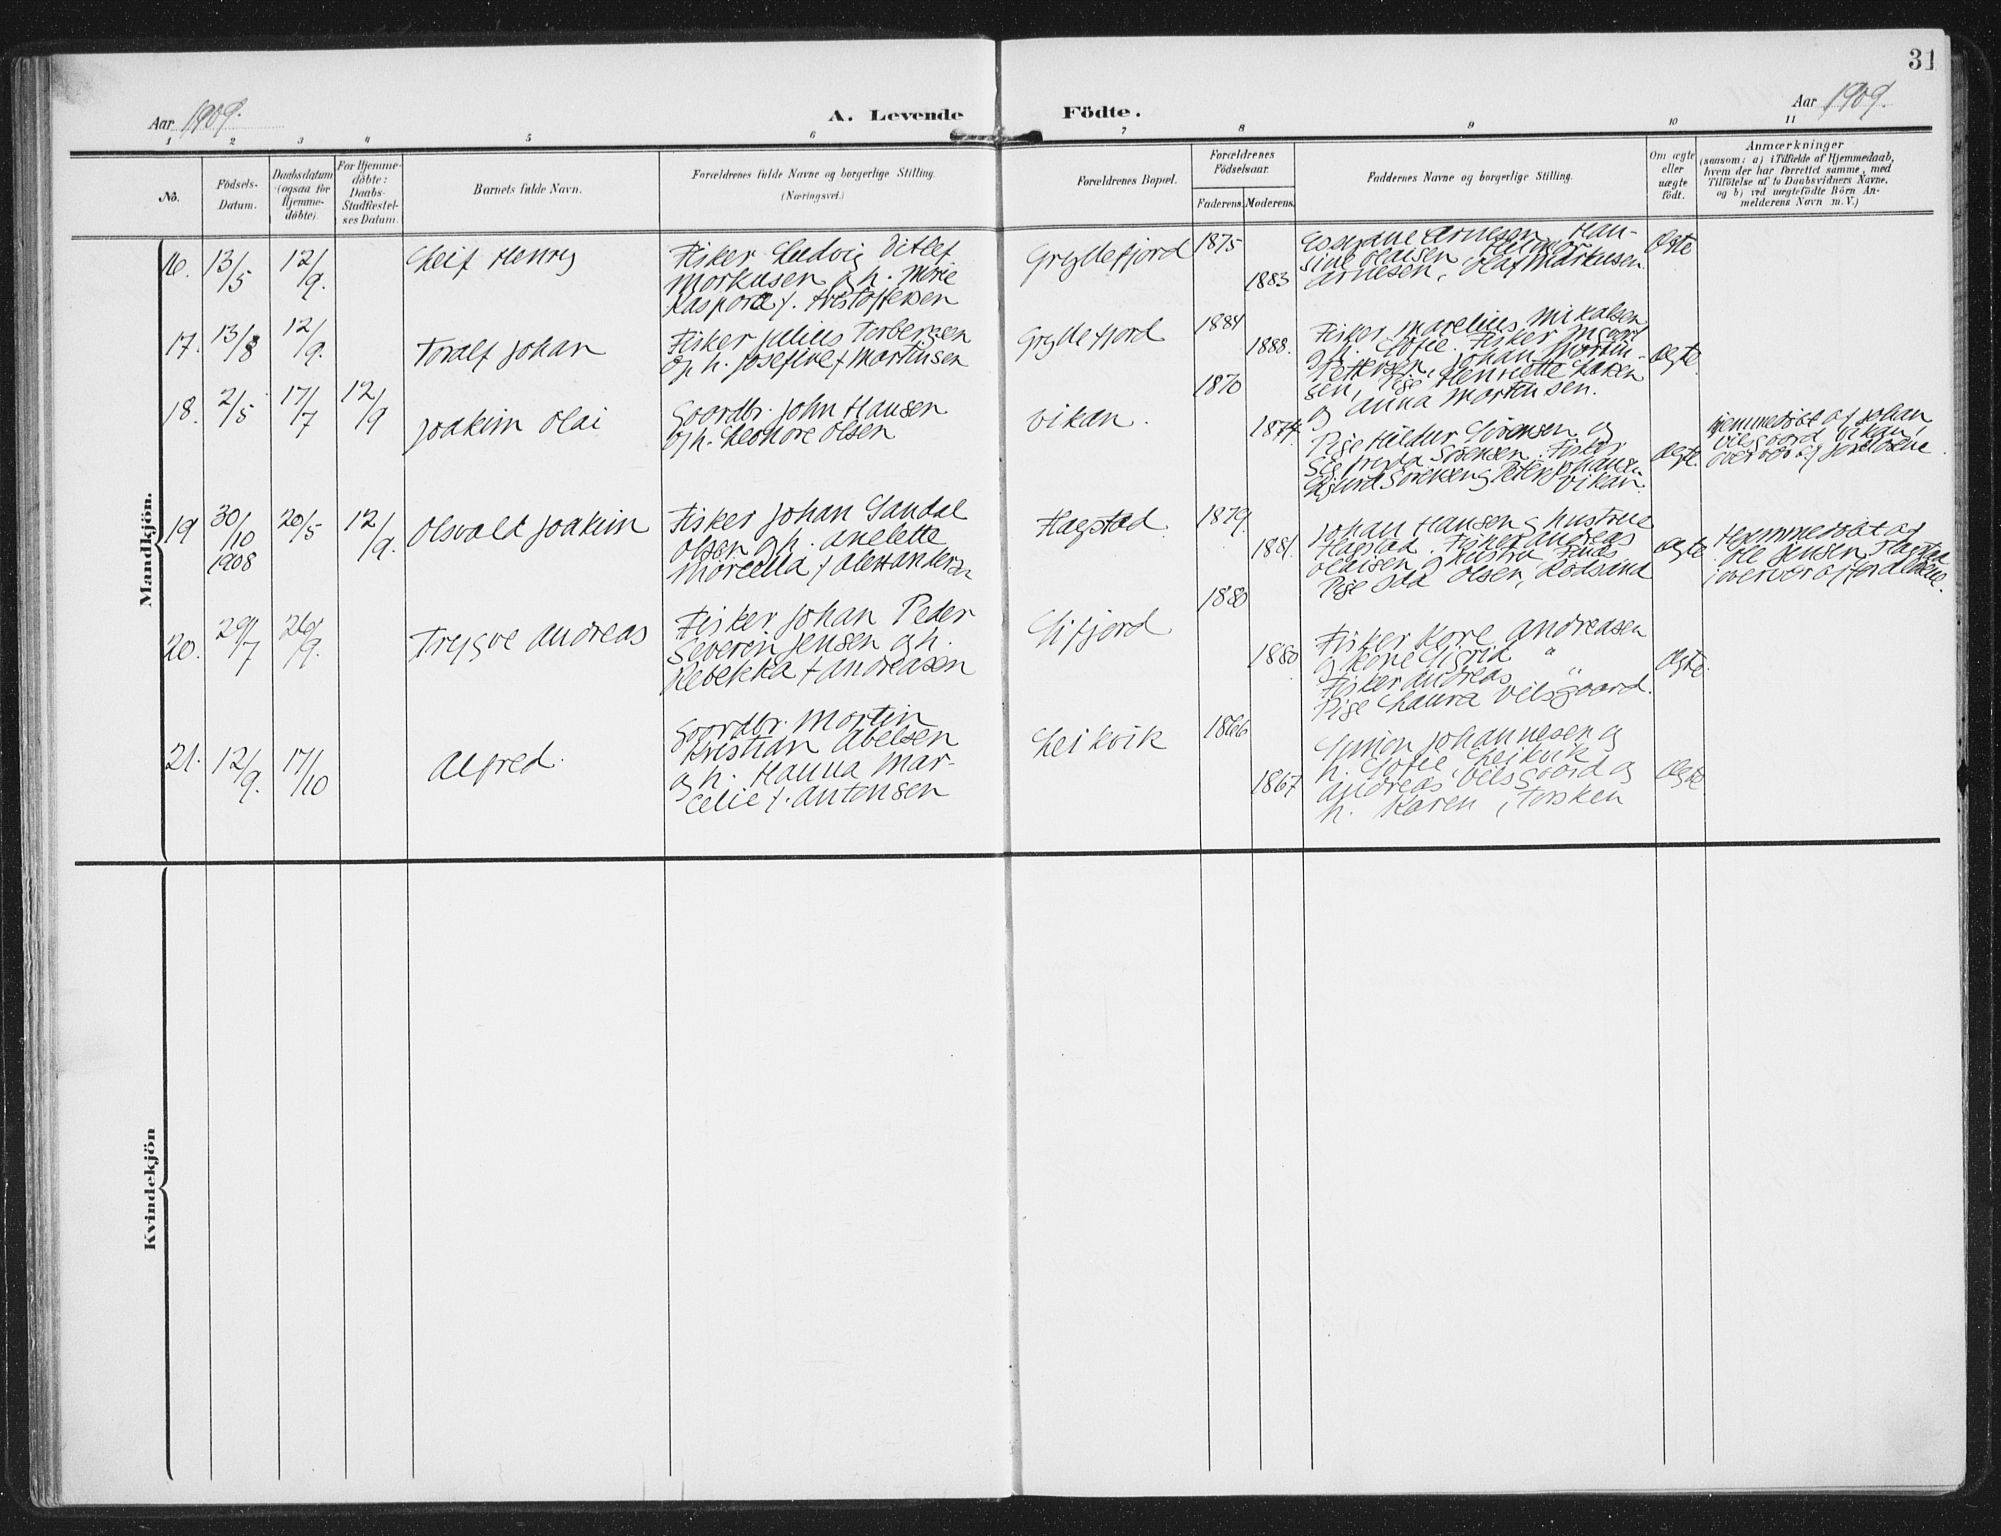 31
Aar 1909.
A. Levende Födte.
Aar 1909.
1 2 3 4 5 6 7 8 9 10 11
No.
Födsels-
Datum.
Daabsdatum
(ogsaa for
Hjemme-
döbte).
For Hjemme-
döbte:
Daabs-
Stadfæstel-
ses Datum.
Barnets fulde Navn.
Forældrenes fulde Navne og borgerlige Stilling.
(Næringsvei.)
Forældrenes Bopæl.
Forældrenes
Födselsaar.
Faderens. Moderens.
Faddernes Navne og borgerlige Stilling.
Om ægte
eller
uægte
födt.
Anmærkninger
(saasom: a) i Tilfælde af Hjemmedaab,
hvem der har forrettet samme, med
Tilföielse af to Daabsvidners Navne,
og b) ved uægtefödte Börn An-
melderens Navn m. V.)
Mandkjön.
16. 13/5 12/9. Leif Henry
Fisker Ludvig Ditlef
Markusen og h. Marie
Kaspara f. Kristoffersen
Gryllefjord
1875
1883
Arnesen, Han-
sine Olaisen, Hilmar
Arnesen, Olaf Markusen.
Ægte
17. 13/8 12/9. Toralf Johan
Fisker Julius Torbergsen
og h. Josefine f Martinsen
Gryllefjord
1884
1888.
Fisker Marelius Mikalsen
og h. Sofie. Fisker
Pettersen, Johan Martin-
sen, Pige Henriette
og Anna Mortensen.
Ægte.
18. 2/5 17/7 12/9 Joakim Olai
Gaardbr. John Hansen
og h. Leonore Olsen
Vikan.
1870
1874.
Pige Hildur Sörensen og
Sörensen. Fisker
Sigurd Sörensen og Peter Johansen
Vikan.
Ægte.
Hjemmedöbt af Johan
Vilsgaard, Vikan,
overvær af forældrene.
19 30/10 1908 20/5 12/9. Olsvald Joakim
Fisker Johan Sandal
Olsen og h. Anelette
Marcella f Aleksandersen
Flagstad
1879.
1881.
Johan Hansen og hustrue
Flagstad. Fisker Andreas
Olaisen og hustru
Pige Ida Olsen, Rödsand
Ægte
Hjemmedöbt af
Ole Jensen, Flagstad
i overvær af forældrene.
20. 29/7 26/9. Trygve Andreas
Fisker Johan Peder
Severin Jensen og h.
Rebekka f Andreasen
Sifjord
1880
1880
Fisker Kore Andreasen
og Kone Sigrid "
Fisker Andreas "
Pige Laura Vilsgaard.
Ægte.
21. 12/9. 17/10 Alfred.
Gaardbr. Martin
Kristian Abelsen
og h. Hanna Mar-
celie f. Antonsen
Leikvik
1866
1867
Simon Johannesen og
h. Sofie, Leikvik
Andreas Vilsgaard og
h. Karen, Torsken
Ægte
Kvindekjön